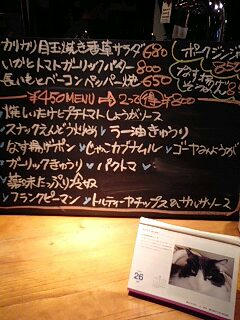 カリカリ目玉焼き香草サラダ 680
いかとトマトガーリックバター 800
長いもとベーコンペッパー焼 650
ポークジンジャー 850
なす
¥450 MENU → 2つで ¥800
焼しいたけとプチトマトしょうがソース
スナックえんどう火少め ラー油きゅうり
なす揚げポン ♥ じゃこカブナムル ゴーヤみょうが
ガーリックきゅうり ♥ パクトマ
薬味たっぷり冷奴
フランクピーマン ♥ トルティーヤチップス&サルサソース
26